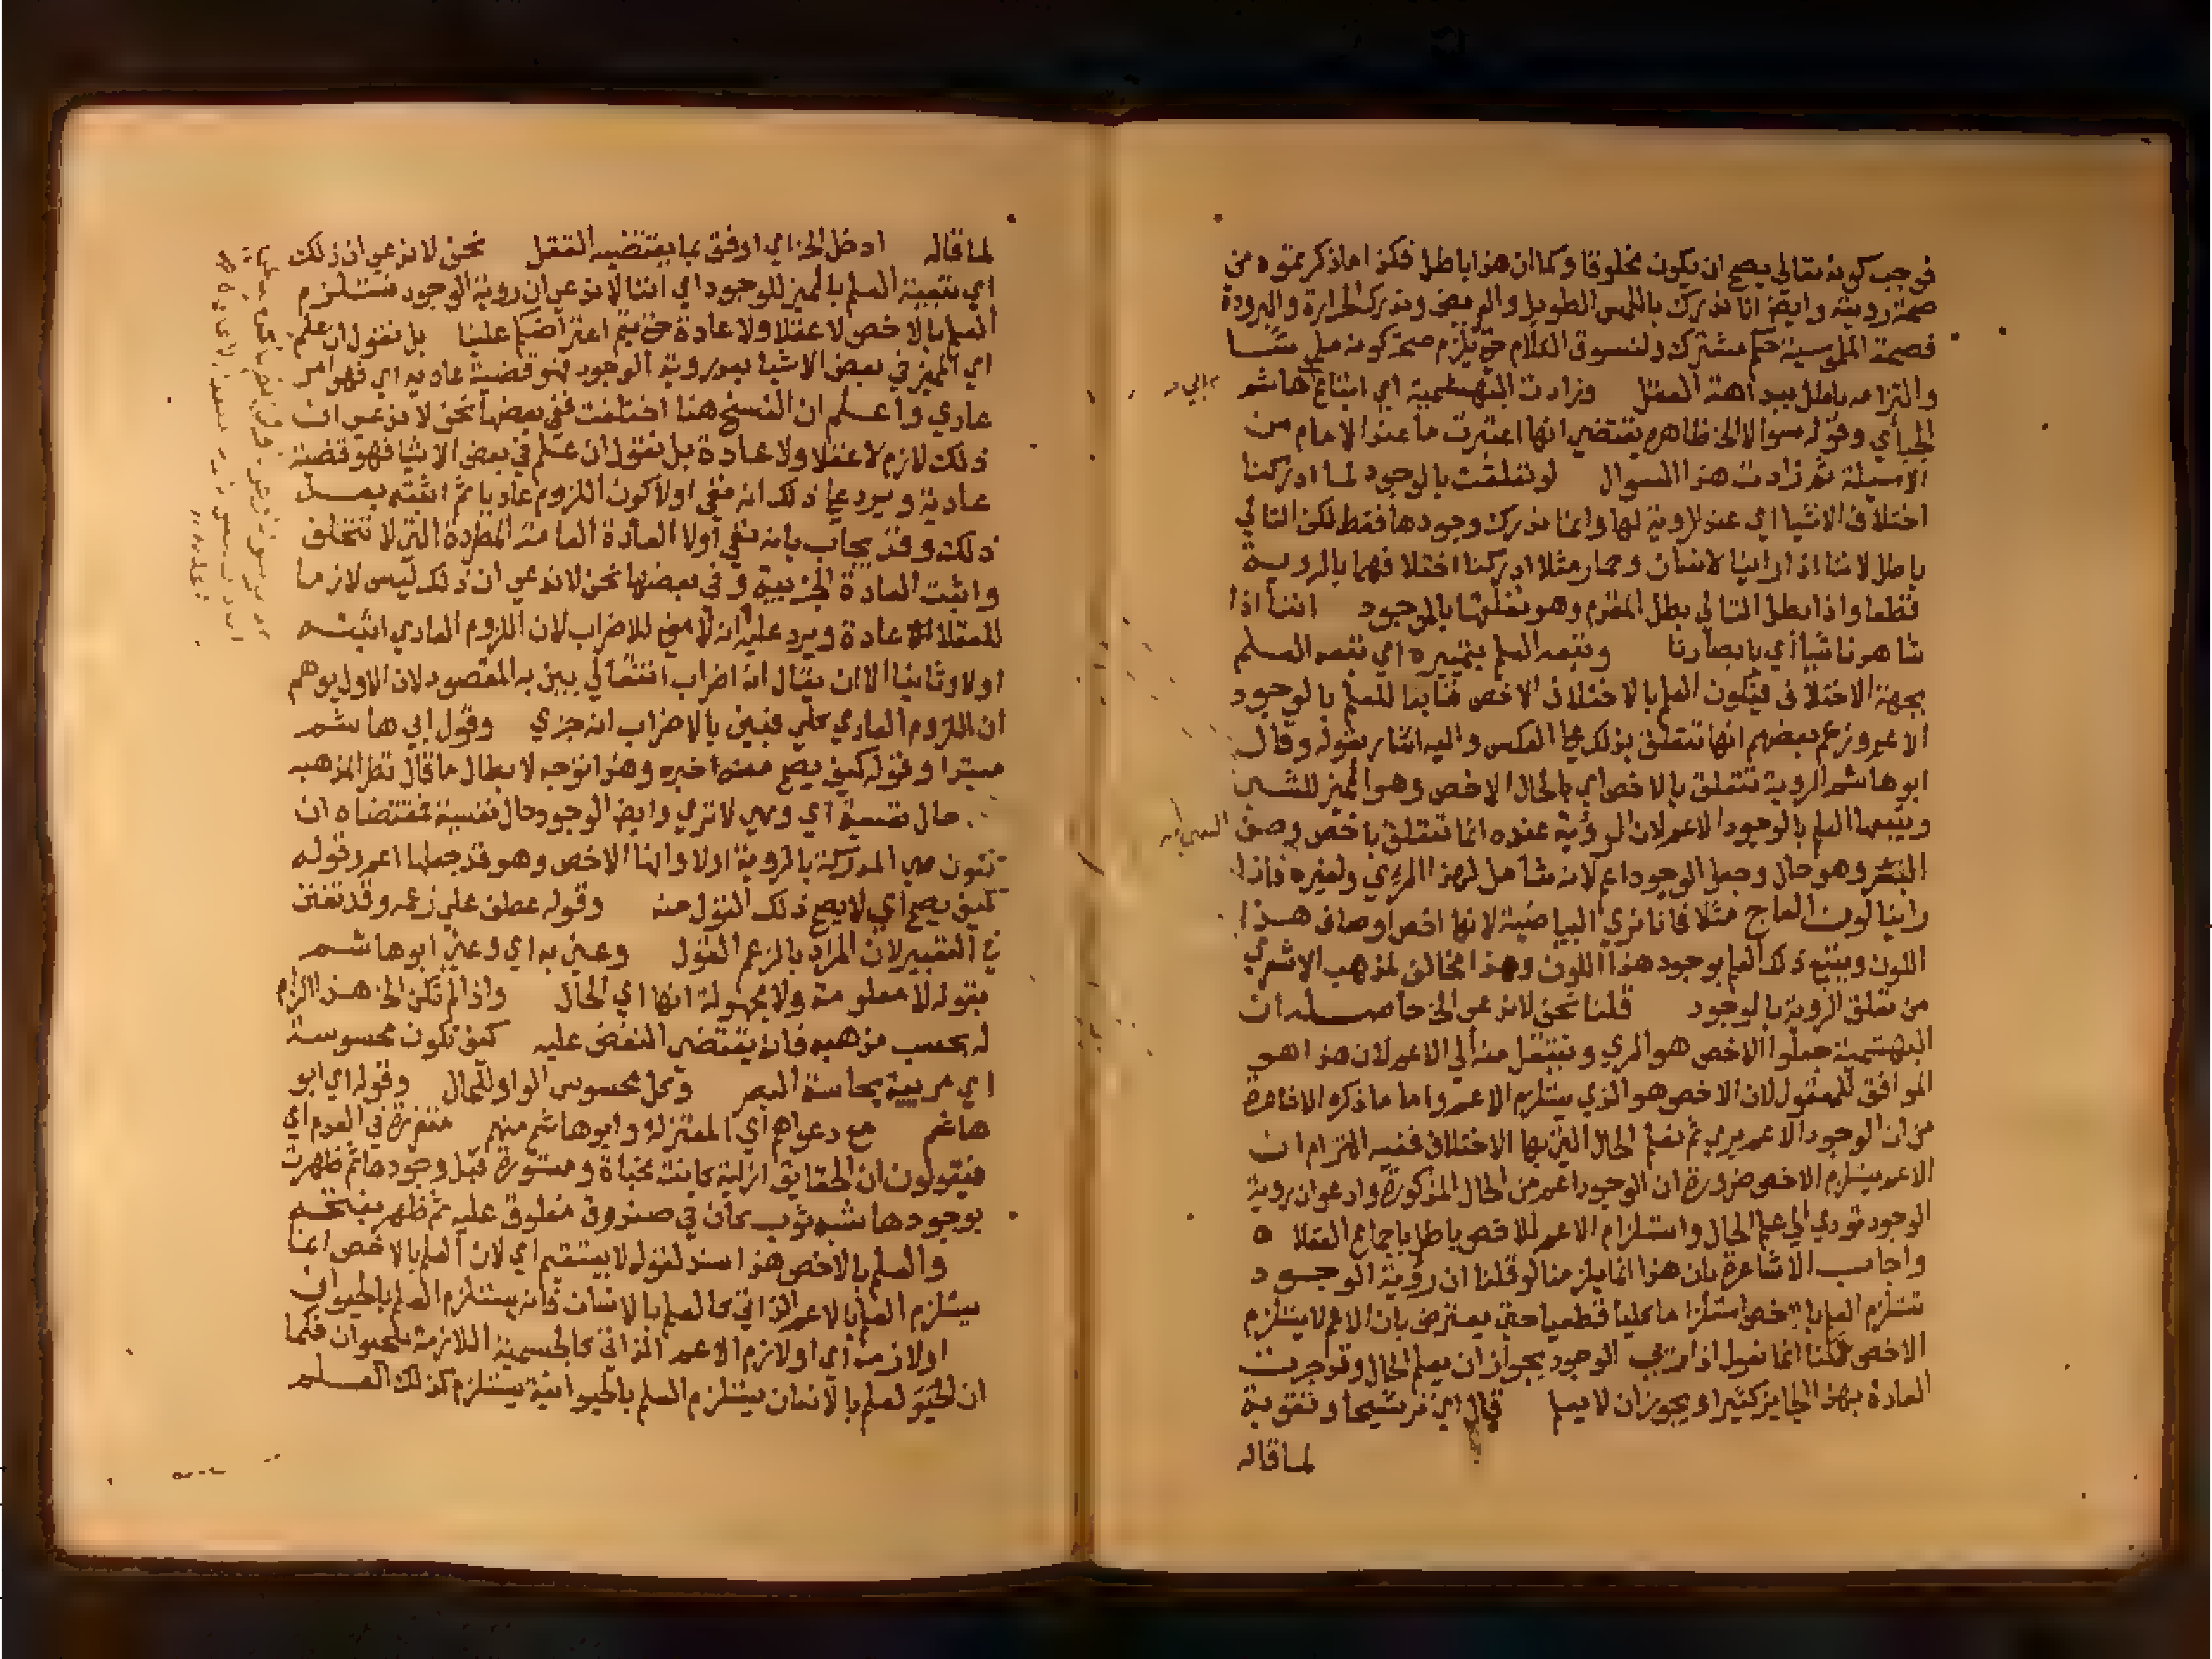 فوجب كونه تعالى يصح ان يكون مخلوقا وكما ان هذا باطل فكذا ماذكرتموه من
صحة رويته وايض انا ندرك باللمس الطويل والعريض وندرك الحرارة والبرودة
فصحة الملموسية حكم مشترك ولنسوق الكلام حتى يلزم صحة كونه ملموسا
والتزامه باطل ببداهة العقل وزادت البهشمية اي اتباع هاشم
الجبأي وقوله سوالا الخ ظاهره يقتضي انها اعتبرت ما عند الامام من
الاسيلة ثم زادت هذا السوال لو تعلقت بالوجود لما ادركنا
اختلاف الاشيا اي عند الروية لها وانما ندرك وجودها فقط لكن التالي
باطل لاننا اذا راينا لانسان وحمار مثلا ادركنا اختلافهما بالروية
قطعا واذا بطل التالي بطل المقدم وهو تعلقها بالوجود اننا اذا
شاهدنا شيأ أي بابصارنا ونتبعه العلم بتمييزه اي نتبعه العلم
بجهة الاختلاف فيكون العلم بالاختلاف الاخص تابعا للعلم بالوجود
الاعم وزعم بعضهم انها تتعلق بذلك على العكس واليه اشار بقوله وقال
ابوهاشم الروية تتعلق بالاخص اي بالحال الاخص وهو المميز للشي
ويتبعها العلم بالوجود الاعم لان الروية عنده انما تتعلق باخص وصف
وهو حال وجعل الوجود اعم لانه شامل لهذا المرءي ولغيره فاذا
راينا لون العاج مثلا فانا نري البياضية لانها اخص اوصاف هذا
اللون ويتبع ذلك العلم بوجود هذا اللون وهذا مخالف لمذهب الاشعري
من تعلق الروية بالوجود قلنا نحن لاندعي الخ حاصله ان
البهشمية جعلوا الاخص هو المري وننتقل منه الي الاعم لان هذا هو
الموافق للمعقول لان الاخص هو الذي يستلزم الاعم واما ماذكره الاشاعرة
من ان الوجود الاعم يري ثم نعلم الحال التي بها الاختلاف ففيه التزام ان
الاعم يستلزم الاخص ضرورة ان الوجود اعم من الحال المذكورة وادعوا ان روية
الوجود تودي الي علم الحال واستلزام الاعم للاخص باطل باجماع العقلا ه
واجاب الاشاعرة بان هذا انما يلزمنا لو قلنا ان روية الوجود
تستلزم العلم بالاخص استلزاما كليا قطعيا حتى يعترض بان الاعم لايستلزم
الاخص قلنا انما نقول اذا الوجود يجوز ان يعلم الحال وقد جرت
العادة بهذا الجايز كثيرا ويجوز ان لا يعلم قال اي ترشيحا وتقوية
لما قاله
لما قاله ادخل الخ اي اوفق بما يقتضيه العقل نحن لا ندعي ان ذلك
اي تتبعية العلم بالمميز للوجود اي اننا لاندعي ان روية الوجود تستلزم
العلم بالاخص لا عقلا ولا عادة حتى يتم اعتراضكم علينا بل نقول ان علم
اي المميز في بعض الاشيا بعد روية الوجود فهو قضية عادية اي فهو امر
عادي واعلم ان النسخ هنا اختلفت ففي بعضها نحن لاندعي ان
ذلك لازم لا عقلا ولا عادة بل نقول ان علم في بعض الاشيا فهو قضية
عادية ويرد على ذلك انه نفي اولا كون اللزوم عاديا ثم اثبته بعد
ذلك وقد يجاب بانه نفي اولا العادة العامة المطردة التي لا تتخلف
واثبت العادة الجزيية وفي بعضها نحن لاندعي ان ذلك ليس لازما
للعقلا عادة ويرد عليه انه لا معني للاضراب لان اللزوم العادي اثبته
اولا وثانيا الا ان يقال انه اضراب انتقالي يبين به المقصود لان الاول يوهم
ان اللزوم العادي كلي فتبين بالاضراب انه جزي وقول ابي هاشم
مبتدا وقوله كيف يصح معه اخبره وهذا توجه لابطال ماقال نظر المذهبه
حال نفسية اي وهي لاتري وايض الوجود حال نفسية فمقتضاه ان
تكون هي المدركة بالروية اولا وانها الاخص وهو قد جعلها اعم وقوله
كيف يصح أي لا يصح ذلك القول منه وقوله عطف علي زعمه وقد تفنن
في التعبير لان المراد بالزعم القول وعني به اي وعني ابوهاشم
بقوله لا معلومة ولا مجهولة انها اي الحال واذا لم تكن الخ هذا الزام
له بحسب مذهبه فانه يقتضي النقض عليه كيف تكون محسوسة
اي مريية بحاسة البصر وكل محسوس الواو للحال وقوله اي ابو
هاشم مع دعواهم اي المعتزلة وابوهاشم منهم متقررة في العدم اي
فيقولون ان الحقايق ازلية كانت مخباة ومستورة قبل وجودها ثم ظهرت
بوجودها شبه ثوب كان في صندوق مغلوق عليه ثم ظهر بفتحه
والعلم بالاخص هذا سند لقوله لا يستقيم اي لان العلم بالاخص انما
يستلزم العلم بالاعم الذاتي كالعلم بالانسان فانه يستلزم العلم بالحيوان
اولازمه اي اولازم الاعم الذاتي كالجسمية اللازمة للحيوان فكما
ان العلم بالانسان يستلزم العلم بالحيوانية يستلزم كذلك العلم